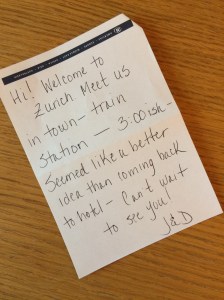 Hi! Welcome to
Zurich Meet us
in town - train
station — 3:00ish -
Seemed like a better
idea than coming back
to hotel - Can't wait
to see you!
J&D